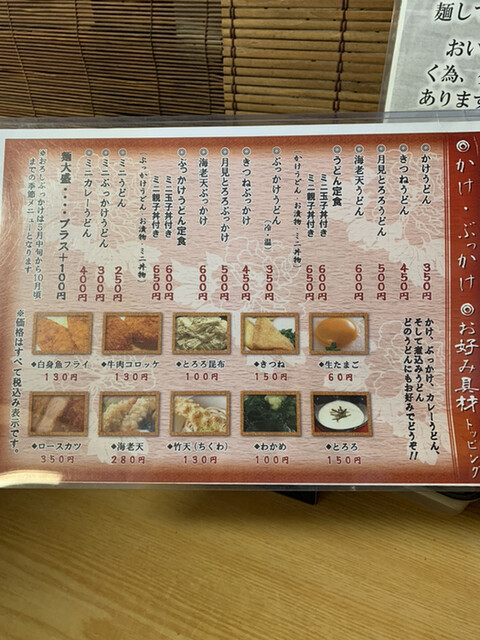 麺して
おい
く為、
あります
◎かけ・ぶっかけ
かけうどん 350円
きつねうどん 450円
月見とろろうどん 500円
海老天うどん 600円
うどん定食
ミニ玉子丼付き 600円
ミニ親子丼付き 650円
かけうどん お漬物・ミニ丼物)
ぶっかけうどん(冷・温) 350円
きつねぶっかけ 450円
月見とろろぶっかけ 500円
海老天ぶっかけ 600円
ぶっかけうどん定食
ミニ玉子丼付き 600円
ミニ親子丼付き 650円
ぶっかけうどん お漬物・ミニ丼物)
ミニうどん 250円
ミニぶっかけうどん 300円
ミニカレーうどん 400円
麺大盛・・・・プラス+100円
※おろしぶっかけは5月中旬から10月頃
までの季節メニューとなります
◎お好み具材トッピング
かけ、ぶっかけ、カレーうどん、
そして煮込みうどん
どのうどんにもお好みでどうぞ!!
◆白身魚フライ ◆牛肉コロッケ ◆とろろ昆布 ◆きつね ◆生たまご
130円 130円 100円 150円 60円
◆ロースカツ ◆海老天 ◆竹天(ちくわ) ◆わかめ ◆とろろ
350円 280円 170円 100円 150円
※価格はすべて税込み表示です。